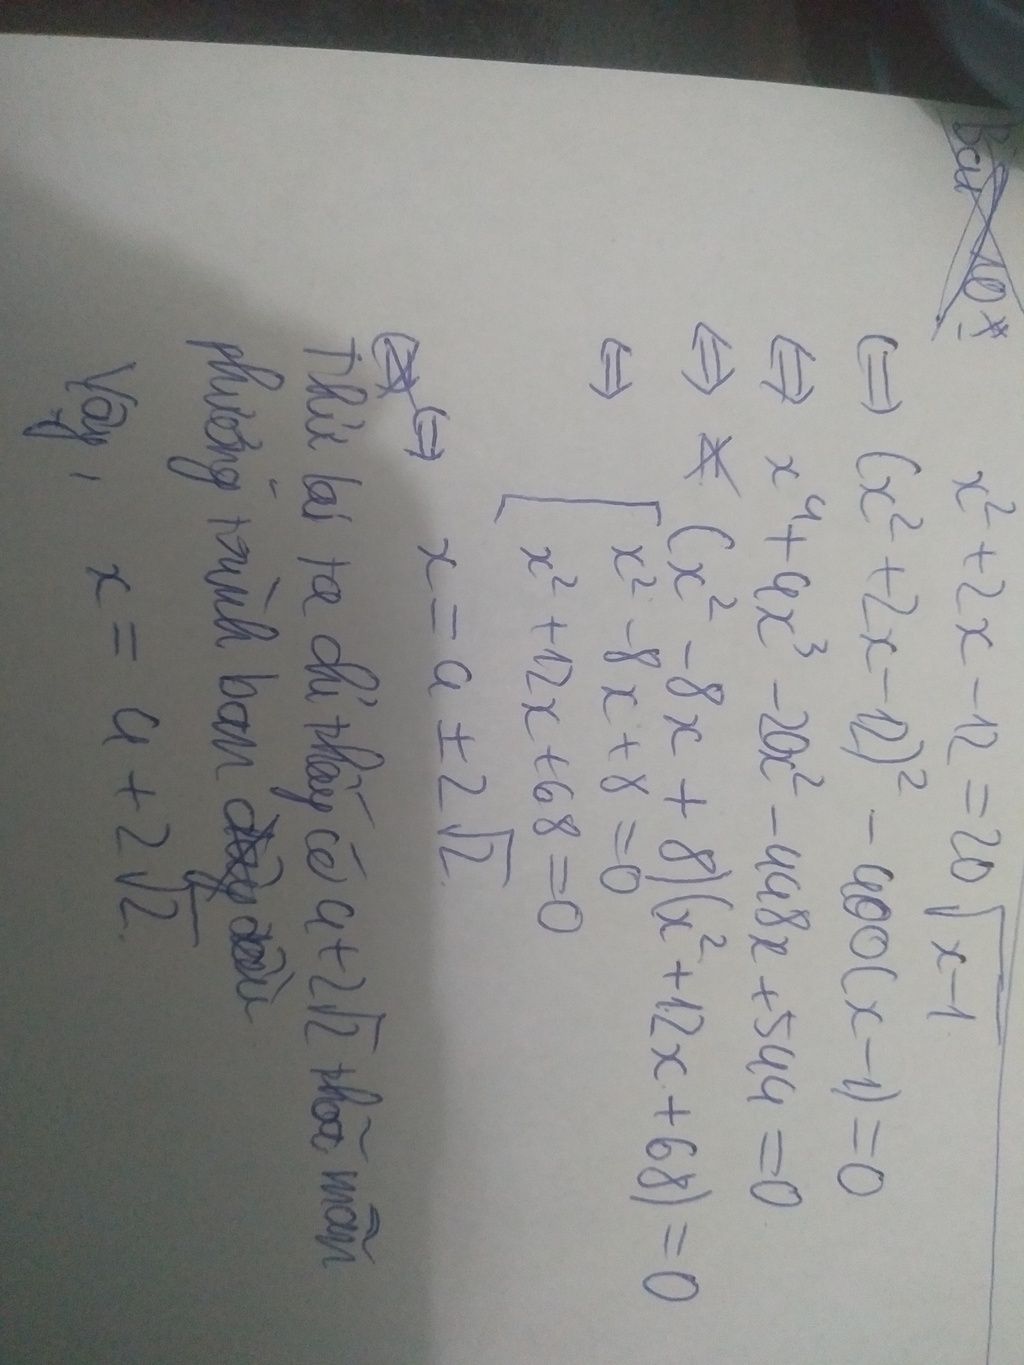 Bài 10*
x² + 2x - 12 = 20√x-1
⇔ (x² + 2x - 12)² - 400(x - 1) = 0
⇔ x⁴ + 4x³ - 20x² - 448x + 544 = 0
⇔ (x² - 8x + 8)(x² + 12x + 68) = 0
⇔ [ x² - 8x + 8 = 0
x² + 12x + 68 = 0
⇔ x = 4 ± 2√2
Thử lại ta chỉ thấy có 4 + 2√2 thỏa mãn
phương trình ban đầu
Vậy, x = 4 + 2√2.